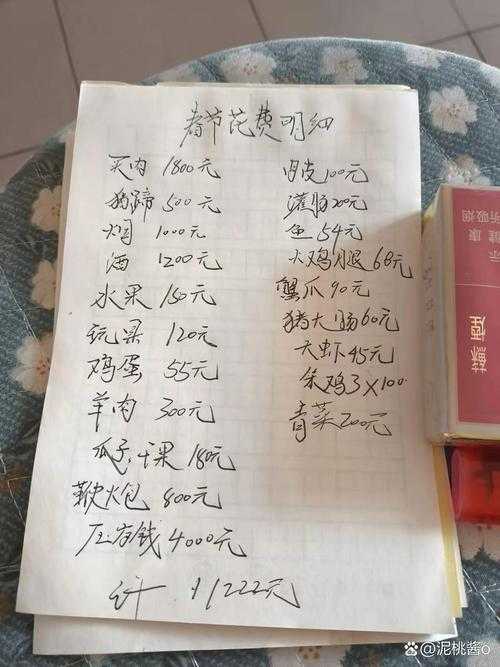 春节花费明细
肉 1800元
猪蹄 500元
烟 1000元
酒 1200元
水果 150元
120元
鸡蛋 55元
羊肉 300元
瓜子、干果 180元
鞭炮 800元
压岁钱 4000元
计 11222元
皮100元
灌肠200元
鱼 54元
大鸡腿 68元
蟹爪 90元
猪大肠60元
大虾45元
柴鸡3×100
青菜200元
示
健康
所吸烟
蘇煙
@泥桃酱o